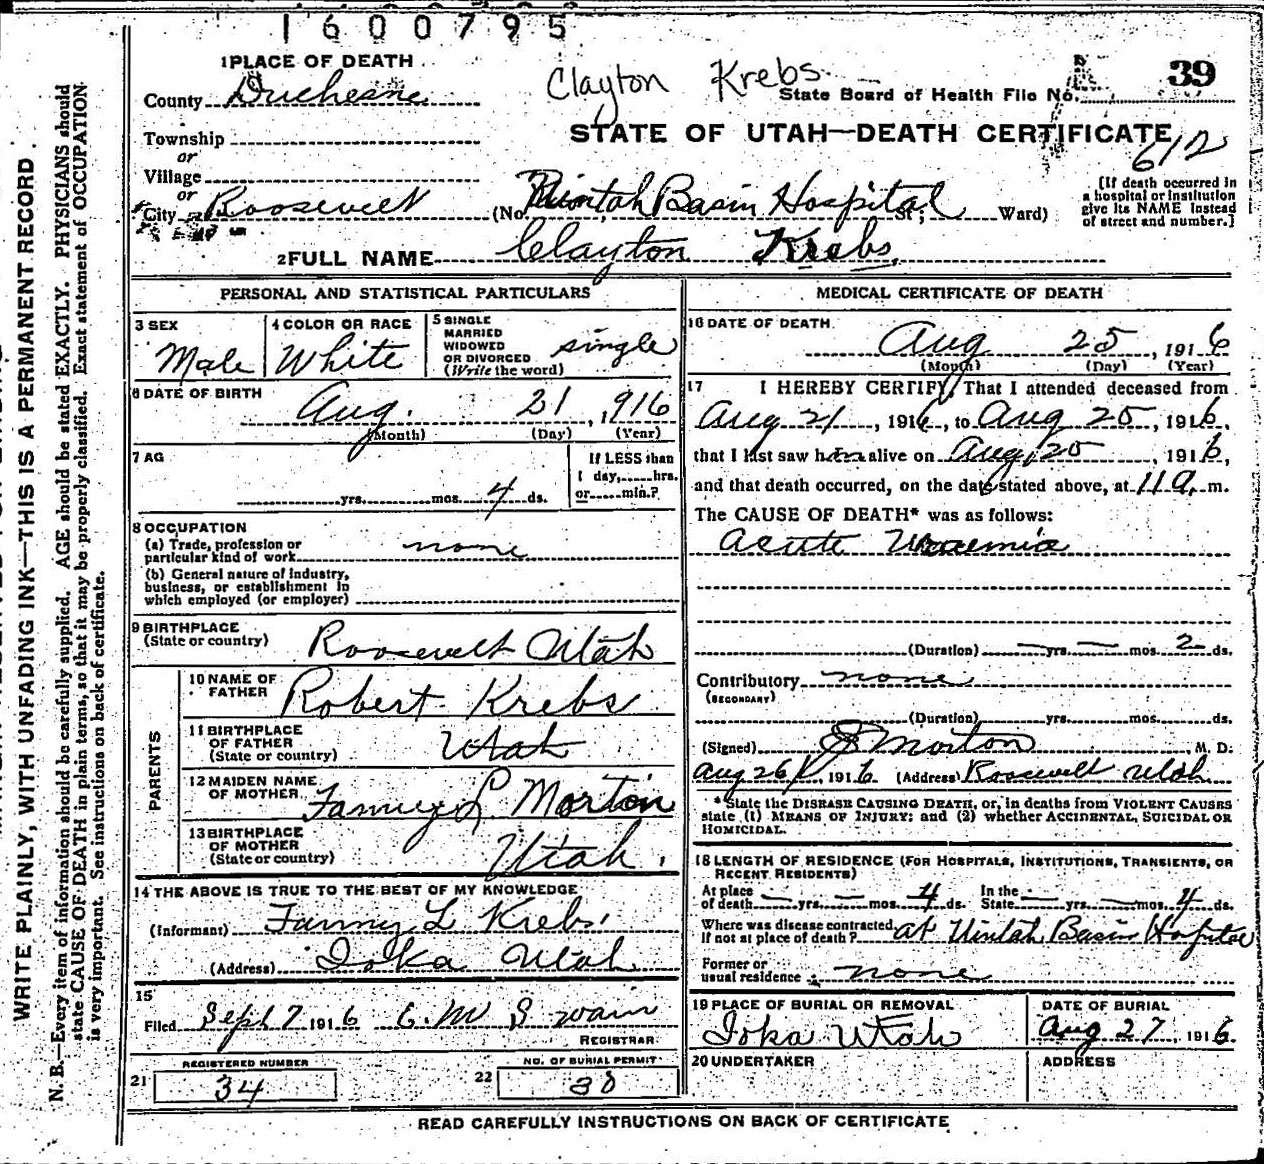 1600795
1 PLACE OF DEATH
County Duchesne
Clayton Krebs
State Board of Health File No. 39
Township
or
STATE OF UTAH—DEATH CERTIFICATE
612
Village
or
City Roosevelt
(No. Uintah Basin Hospital St.; Ward)
[If death occurred in
a hospital or institution
give its NAME instead
of street and number.]
2 FULL NAME Clayton Krebs
PERSONAL AND STATISTICAL PARTICULARS
3 SEX
Male
4 COLOR OR RACE
White
5 SINGLE
MARRIED
WIDOWED
OR DIVORCED
(Write the word)
single
6 DATE OF BIRTH
Aug. 21, 916
(Month) (Day) (Year)
7 AG
yrs. mos. 4 ds.
If LESS than
1 day, hrs.
or min.?
8 OCCUPATION
(a) Trade, profession or
particular kind of work none
(b) General nature of industry,
business, or establishment in
which employed (or employer)
9 BIRTHPLACE
(State or country) Roosevelt Utah
PARENTS
10 NAME OF
FATHER Robert Krebs
11 BIRTHPLACE
OF FATHER
(State or country) Utah
12 MAIDEN NAME
OF MOTHER Fannye L Morton
13 BIRTHPLACE
OF MOTHER
(State or country) Utah.
14 THE ABOVE IS TRUE TO THE BEST OF MY KNOWLEDGE
(Informant) Fanny L Krebs.
(Address) Ioka Utah
15
Filed Sept 7 1916 E. M Swain
REGISTRAR
21 REGISTERED NUMBER
34
22 NO. OF BURIAL PERMIT
38
MEDICAL CERTIFICATE OF DEATH
16 DATE OF DEATH
Aug 25, 1916
(Month) (Day) (Year)
17 I HEREBY CERTIFY, That I attended deceased from
Aug 21, 1916, to Aug 25, 1916,
that I last saw him alive on Aug. 25, 1916,
and that death occurred, on the date stated above, at 11 a. m.
The CAUSE OF DEATH* was as follows:
Acute Uraemia
(Duration) — yrs. — mos. 2 ds.
Contributory none
(SECONDARY)
(Duration) yrs. mos. ds.
(Signed) Morton, M. D.
Aug 26, 1916 (Address) Roosevelt Utah
*State the DISEASE CAUSING DEATH, or, in deaths from VIOLENT CAUSES
state (1) MEANS OF INJURY; and (2) whether ACCIDENTAL, SUICIDAL OR
HOMICIDAL.
18 LENGTH OF RESIDENCE (FOR HOSPITALS, INSTITUTIONS, TRANSIENTS, OR
RECENT RESIDENTS)
At place
of death — yrs. — mos. 4 ds. In the
State — yrs. — mos. 4 ds.
Where was disease contracted,
If not at place of death? at Uintah Basin Hospital
Former or
usual residence none
19 PLACE OF BURIAL OR REMOVAL
Ioka Utah
DATE OF BURIAL
Aug 27, 1916
20 UNDERTAKER
ADDRESS
READ CAREFULLY INSTRUCTIONS ON BACK OF CERTIFICATE
WRITE PLAINLY, WITH UNFADING INK—THIS IS A PERMANENT RECORD.
N. B.—Every item of information should be carefully supplied. AGE should be stated EXACTLY. PHYSICIANS should
state CAUSE OF DEATH in plain terms, so that it may be properly classified. Exact statement of OCCUPATION
is very important. See instructions on back of certificate.